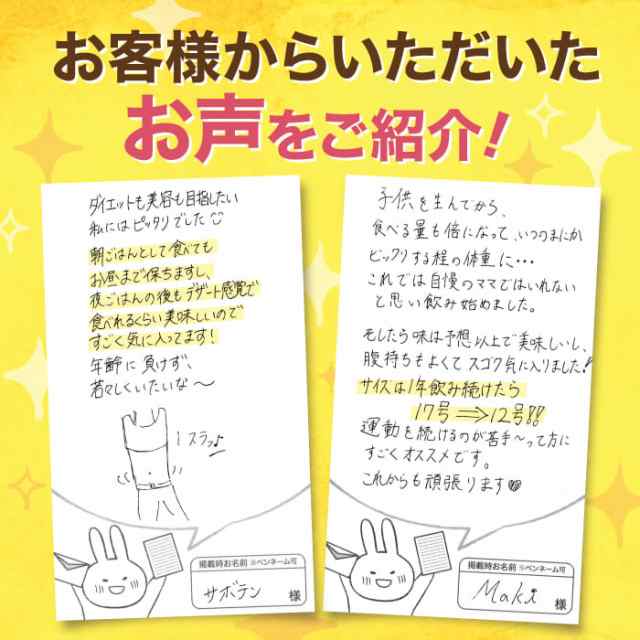 お客様からいただいた
お声をご紹介!
ダイエットも美容も目指したい
私にはピッタリでした
朝ごはんとして食べても
お昼まで保ちますし、
夜ごはんの後もデザート感覚で
食べれるくらい美味しいので
すごく気に入ってます!
年齢に負けず、
若々しくいたいな〜
スラッ♪
掲載時お名前 ※ペンネーム可
サボテン 様
子供を生んでから、
食べる量も倍になって、いつのまにか
ビックリする程の体重に…
これでは自慢のママではいれない
と思い飲み始めました。
そしたら味は予想以上で美味しいし、
腹持ちもよくてスゴク気に入りました!
サイズは1年飲み続けたら
17号⇒12号!!
運動を続けるのが苦手〜って方に
すごくオススメです。
これからも頑張ります♥
掲載時お名前 ※ペンネーム可
Maki 様